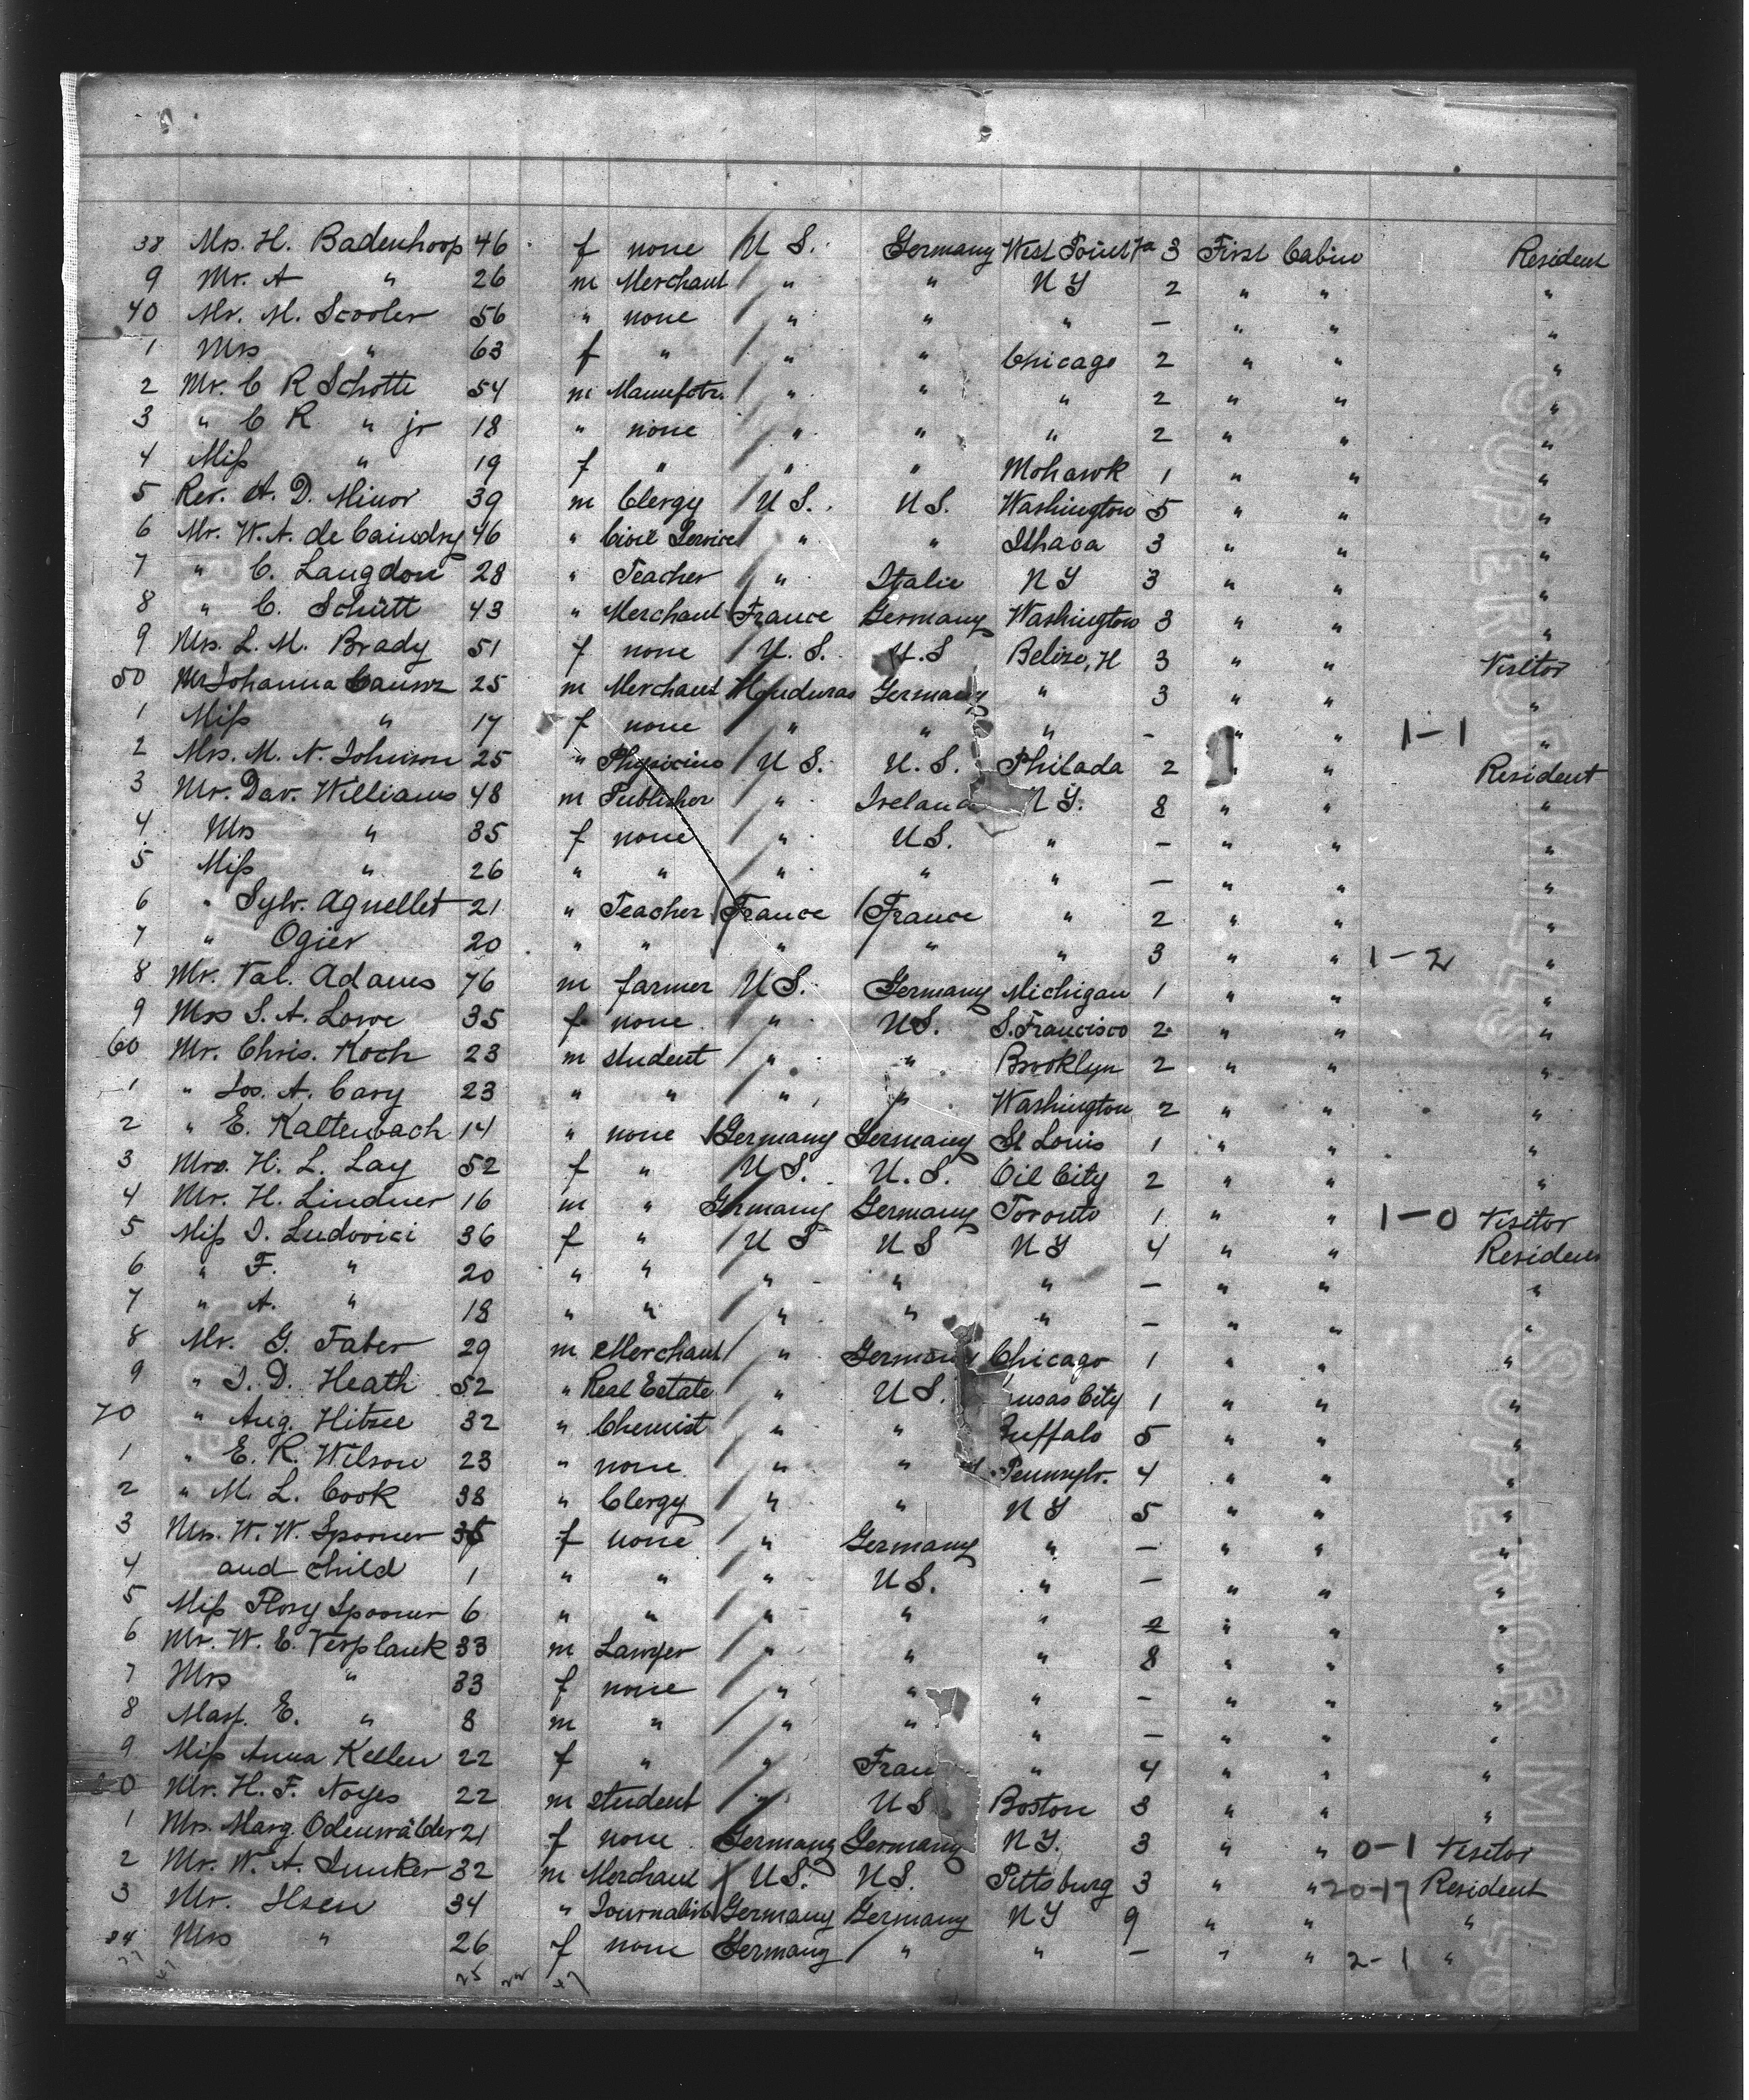 38 Mrs. H. Badenhoop 46 f none U S. Germany West Point 3 First Cabin Resident
9 Mr. A " 26 m Merchant " " N Y 2 " " "
40 Mr. M. Scooler 56 " none " " " — " " "
1 Mrs " 63 f " " " Chicago 2 " " "
2 Mr. C R Schotte 54 m Manufctr. " " " 2 " " "
3 " C R " jr 18 " none " " " 2 " " "
4 Miss " 19 f " " " Mohawk 1 " " "
5 Rev. A. D. Minor 39 m Clergy U S. U S. Washington 5 " " "
6 Mr. W. A. de Caindry 46 " Civil Service " " Ithaca 3 " " "
7 " C. Langdon 28 " Teacher " Italie N Y 3 " " "
8 " C. Schütt 43 " Merchant France Germany Washington 3 " " "
9 Mrs. L. M. Brady 51 f none U. S. U. S Belize, H 3 " " Visitor
50 Mr Johanna 25 m Merchant Honduras Germany " 3 " " "
1 Miss " 17 f none " " " - " " 1-1 "
2 Mrs. M. N. Johnson 25 " Physicins U S. U. S. Philada 2 " " Resident
3 Mr. Dav. Williams 48 m Publisher " Ireland N Y. 8 " " "
4 Mrs " 35 f none " U S. " - " " "
5 Miss " 26 " " " " " — " " "
6 " Sylv. Agnellet 21 " Teacher France France " 2 " " "
7 " Ogier 20 " " " " " 3 " " 1-2 "
8 Mr. Val. Adams 76 m farmer U S. Germany Michigan 1 " " "
9 Mrs S. A. Lowe 35 f none " U S. S. Francisco 2 " " "
60 Mr. Chris. Koch 23 m student " " Brooklyn 2 " " "
1 " Jos. A. Cary 23 " " " " Washington 2 " " "
2 " E. Kaltenbach 14 " none Germany Germany St Louis 1 " " "
3 Mrs. H. L. Lay 52 f " U S. U. S. Oil City 2 " " "
4 Mr. H. Lindner 16 m " Germany Germany Toronto 1 " " 1-0 Visitor
5 Miss I. Ludovici 36 f " U S U S N Y 4 " " Resident
6 " F. " 20 " " " " " — " " "
7 " A. " 18 " " " " " — " " "
8 Mr. G. Faber 29 m Merchant " Germany Chicago 1 " " "
9 " I. D. Heath 52 " Real Estate " U S. nsas City 1 " " "
70 " Aug. Hitzel 32 " Chemist " " Buffalo 5 " " "
1 " E. R. Wilson 23 " none " " Pennsylv. 4 " " "
2 " M. L. Cook 38 " Clergy " " N Y 5 " " "
3 Mrs. W. W. Spooner f none " Germany " — " " "
4 and child 1 " " " U S. " — " " "
5 Miss Flory Spooner 6 " " " " " 2 " " "
6 Mr. W. E. Verplank 33 m Lawyer " " " 8 " " "
7 Mrs " 33 f none " " " - " " "
8 Mast. E. " 8 m " " " " — " " "
9 Miss Anna Keller 22 f " " Fran " 4 " " "
80 Mr. H. F. Noyes 22 m student " U S Boston 3 " " "
1 Mrs. Marg. Odenwälder 21 f none Germany Germany N Y. 3 " " 0-1 Visitor
2 Mr. W. A. Dunker 32 m Merchant U S. U S. Pittsburg 3 " " 20-17 Resident
3 Mr. Ilsen 34 " Journalist Germany Germany N Y 9 " " "
84 Mrs " 26 f none Germany " " — " " 2-1 "